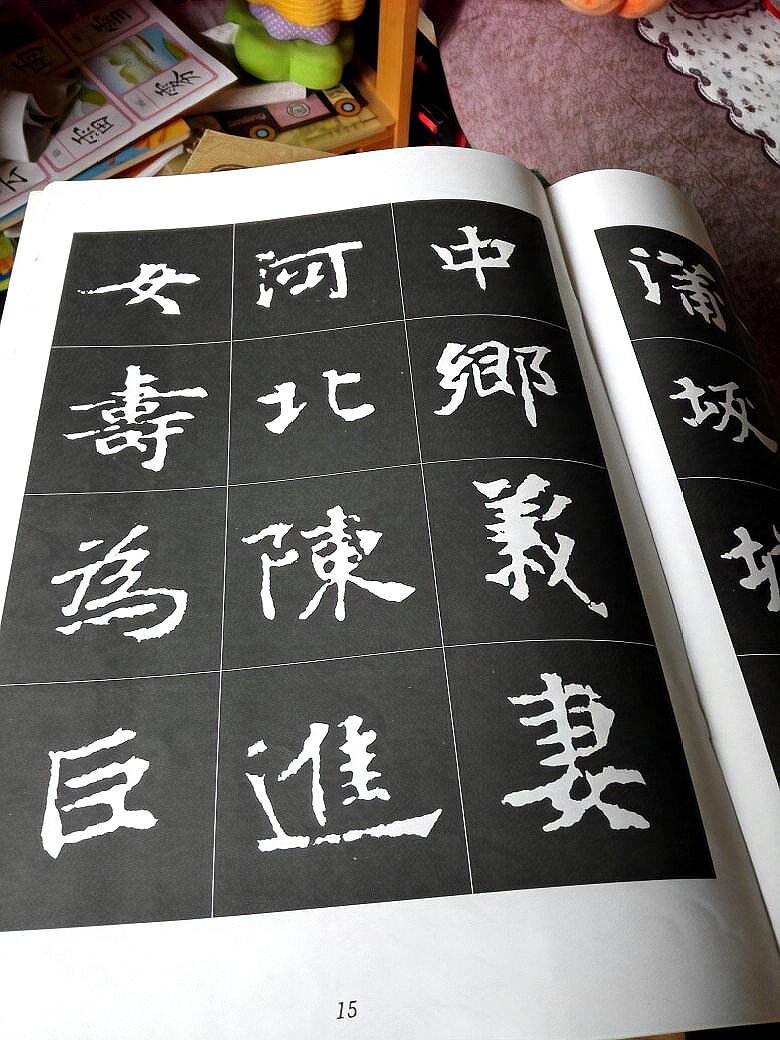 蒲坂城
中鄉義妻
河北陳進
女壽為巨
15